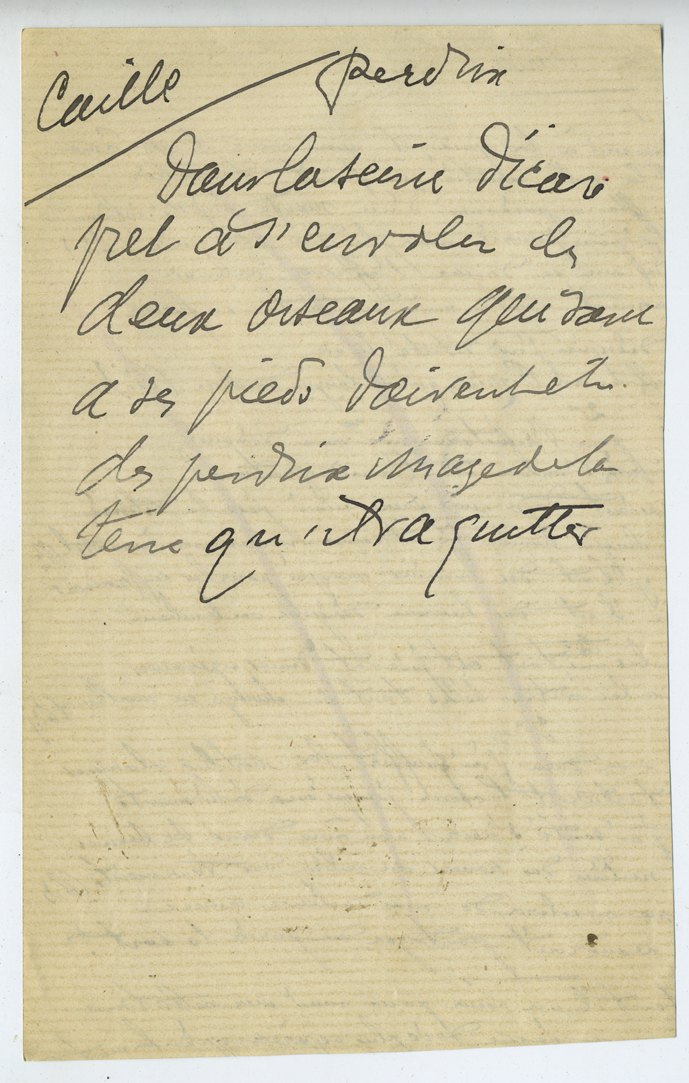 Caille perdrix
Dans la scène d'icare
pret à s'envoler les
deux oiseaux qui sont
a ses pieds doivent etre
des perdrix image de la
terre qu'il va quitter